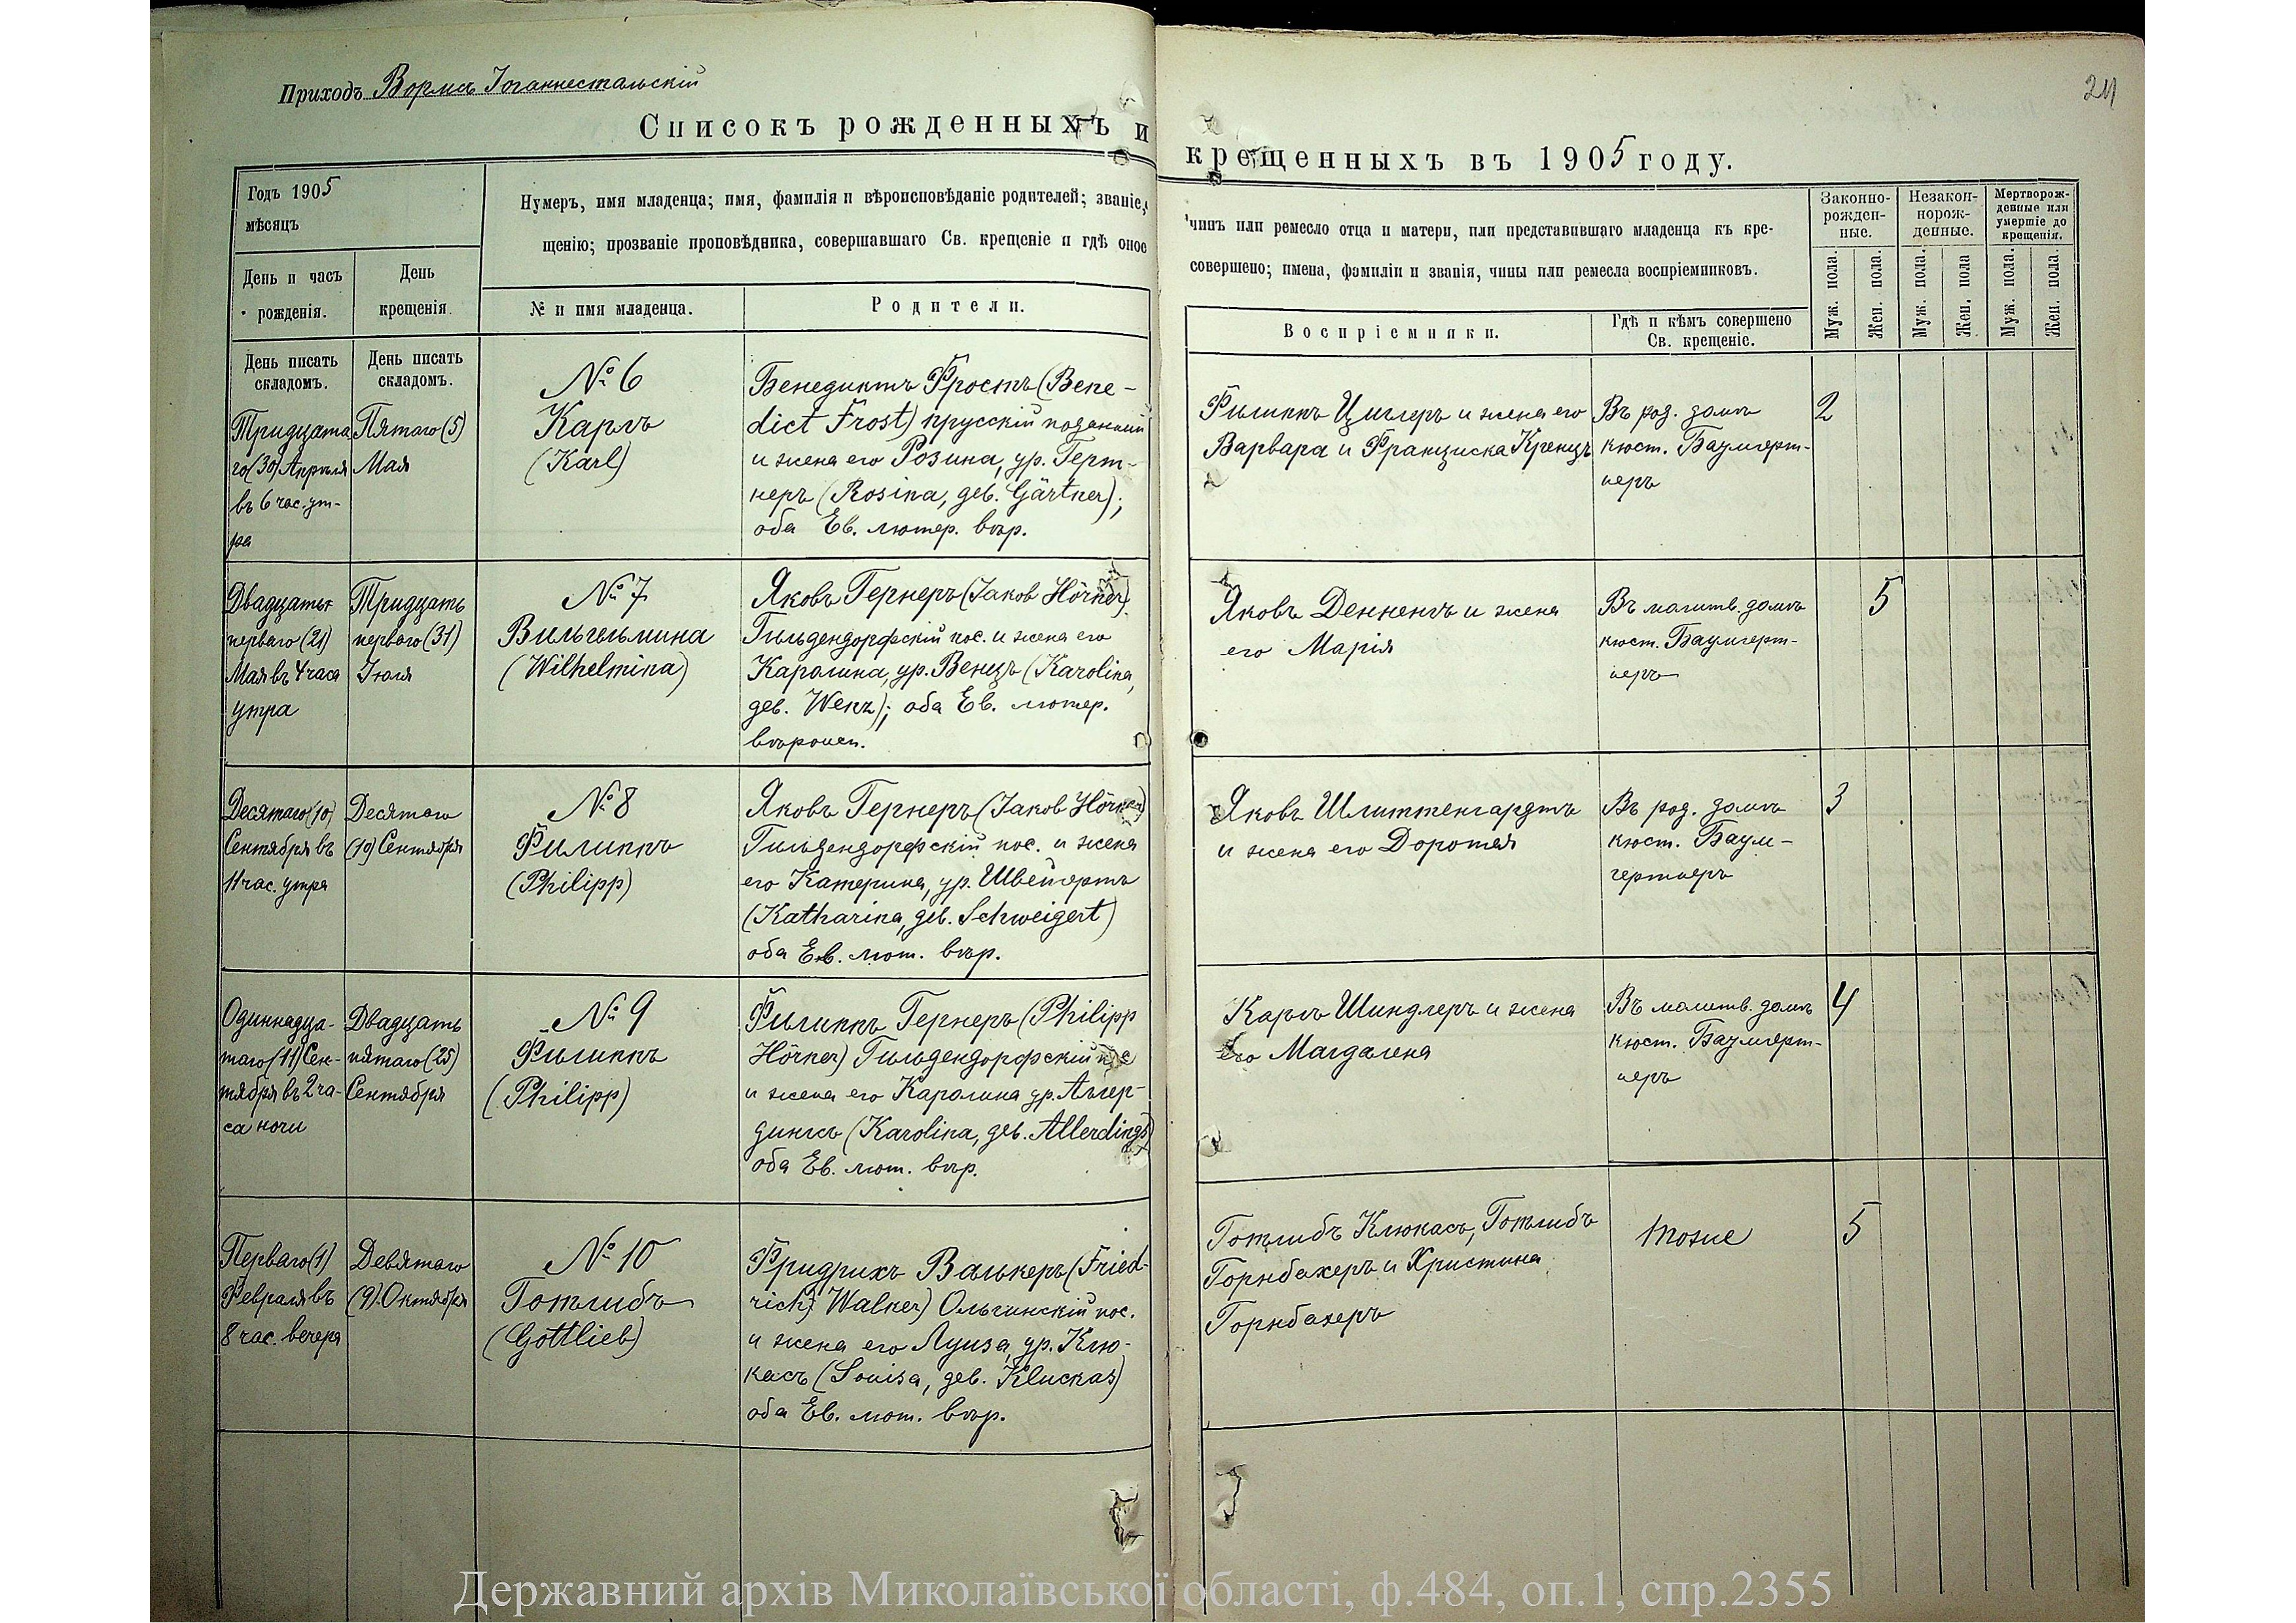 Приходъ Вормс Іоганнестальскій
24
Списокъ рожденныхъ и крещенныхъ въ 1905 году.
Годъ 1905
мѣсяцъ
День и часъ
рожденія.
День
крещенія.
Нумеръ, имя младенца; имя, фамилія и вѣроисповѣданіе родителей; званіе,
щенію; прозваніе проповѣдника, совершавшаго Св. крещеніе и гдѣ оное
№ и имя младенца.
Родители.
чинъ или ремесло отца и матери, или представившаго младенца къ кре-
совершено; имена, фамиліи и званія, чины или ремесла воспріемниковъ.
Воспріемники.
Гдѣ и кѣмъ совершено
Св. крещеніе.
Законно-
рожден-
ные.
Незакон-
норож-
денные.
Мертворож-
денные или
умершіе до
крещенія.
Муж. пола.
Жен. пола.
Муж. пола.
Жен. пола
Муж. пола.
Жен. пола.
День писать
складомъ.
День писать
складомъ.
Тридцата
го (30) Апрѣля
въ 6 час. ут-
ра
Пятаго (5)
Мая
№ 6
Карлъ
(Karl)
Бенедиктъ Фростъ (Bene-
dict Frost) прусскій подданный
и жена его Розина, ур. Герт-
неръ (Rosina, geb. Gärtner);
оба Ев. лютер. вѣр.
Филиппъ Циглеръ и жена его
Варвара и Франциска Кренцъ
Въ род. домѣ
кюст. Баумгерт-
неръ
2
Двадцать
перваго (21)
Мая въ 4 часа
утра
Тридцать
перваго (31)
Іюля
№ 7
Вильгельмина
(Wilhelmina)
Яковъ Гернеръ (Jakob Hörner)
Гильдендорфскій пос. и жена его
Каролина, ур. Венцъ (Karolina,
geb. Wenz); оба Ев. лютер.
вѣроисп.
Яковъ Денненгъ и жена
его Марія
Въ молитв. домѣ
кюст. Баумгерт-
неръ
5
Десятаго (10)
Сентября въ
11 час. утра
Десятаго
(10) Сентября
№ 8
Филиппъ
(Philipp)
Яковъ Гернеръ (Jakob Hörner)
Гильдендорфскій пос. и жена
его Катерина, ур. Швейгертъ
(Katharina, geb. Schweigert)
оба Ев. лют. вѣр.
Яковъ Шлиттенгардтъ
и жена его Доротея
Въ род. домѣ
кюст. Баум-
гертнеръ
3
Одиннадца-
таго (11) Сен-
тября въ 2 ча-
са ночи
Двадцать
пятаго (25)
Сентября
№ 9
Филиппъ
(Philipp)
Филиппъ Гернеръ (Philipp
Hörner) Гильдендорфскій пос
и жена его Каролина ур. Аллер-
дингсъ (Karolina, geb. Allerdings)
оба Ев. лют. вѣр.
Карлъ Шиндлеръ и жена
его Магдалена
Въ молитв. домѣ
кюст. Баумгерт-
неръ
4
Перваго (1)
Февраля въ
8 час. вечера
Девятаго
(9) Октября
№ 10
Готлибъ
(Gottlieb)
Фридрихъ Валькеръ (Fried-
rich) Walker) Ольгинскій пос.
и жена его Луиза, ур. Клю-
касъ (Louisa, geb. Kluckas)
оба Ев. лют. вѣр.
Готлибъ Клюкасъ, Готлибъ
Горнбахеръ и Христина
Горнбахеръ
тоже
5
Державний архів Миколаївської області, ф.484, оп.1, спр.2355